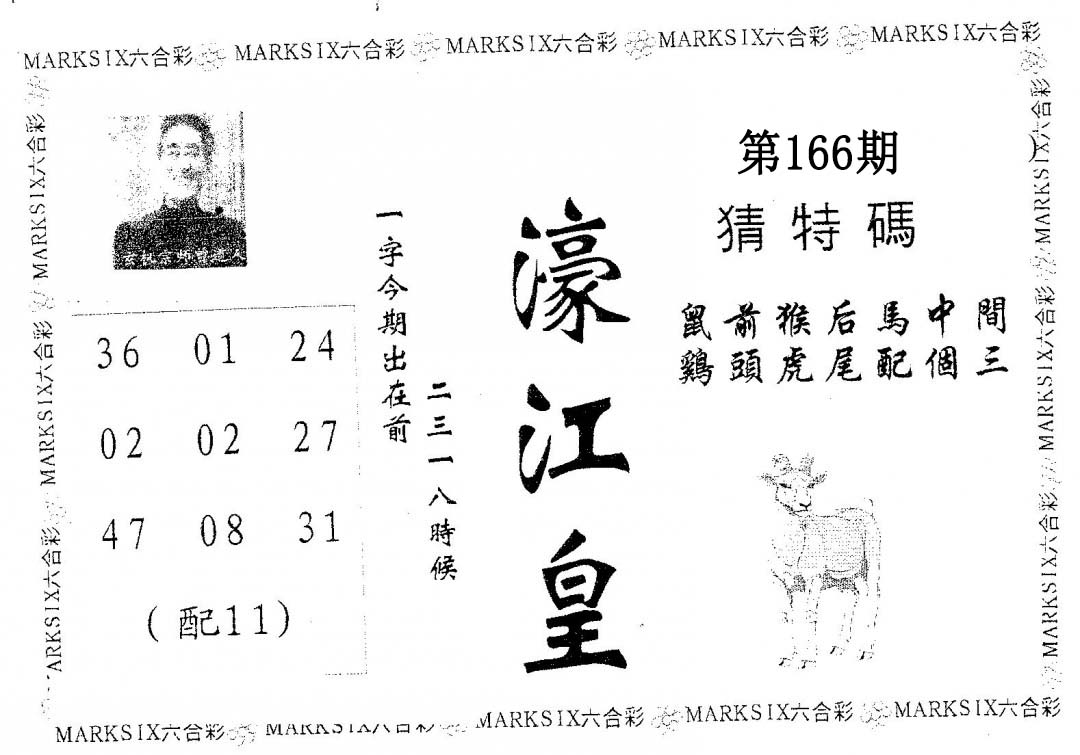 MARKSIX六合彩 MARKSIX六合彩 MARKSIX六合彩 MARKSIX六合彩 MARKSIX六合彩
MARKSIX六合彩 MARKSIX六合彩 ARKSIX六合彩
第166期
猜特碼
鼠前猴后馬中間
鷄頭虎尾配個三
濠江皇
一字今期出在前
二三一八時候
36 01 24
02 02 27
47 08 31
(配11)
MARKSIX六合彩 MARKSIX六合彩 MARKSIX六合彩
MARKSIX六合彩 MARKSIX六合彩 MARKSIX六合彩 MARKSIX六合彩 MARKSIX六合彩